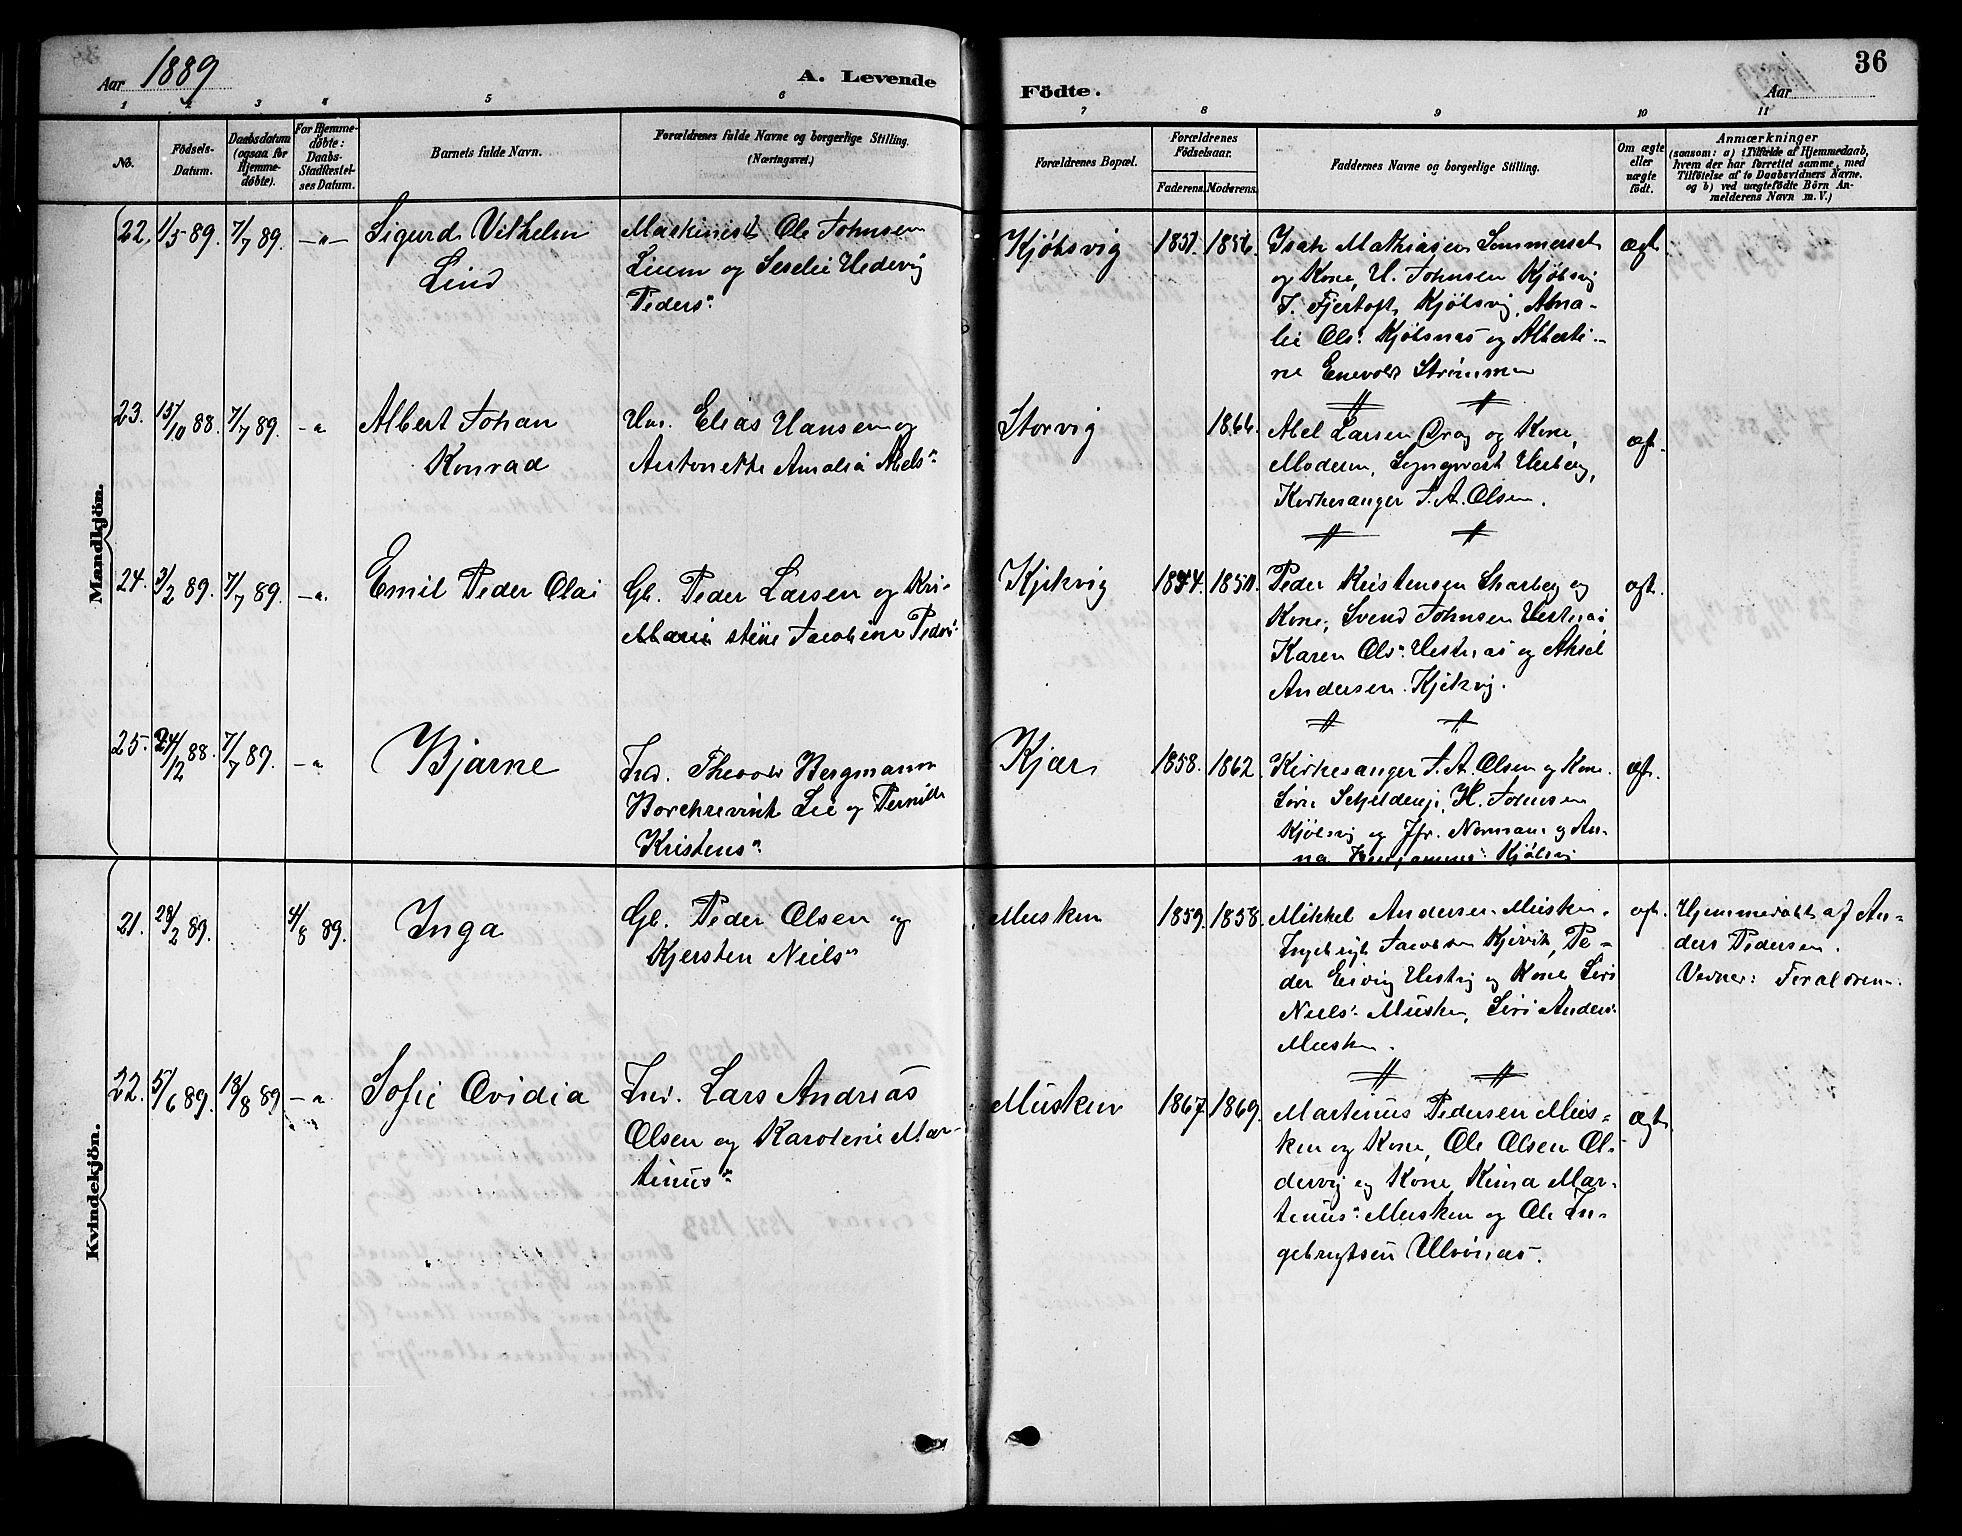 Aar 1889
A. Levende
Födte.
36
Aar
1 2 3 4 5 6 7 8 9 10 11
No.
Födsels-
Datum.
Daabsdatum
(ogsaa for
Hjemme-
døbte).
For Hjemme-
døbte:
Daabs-
Stadfæstel-
ses Datum.
Barnets fulde Navn.
Forældrenes fulde Navne og borgerlige Stilling.
(Næringsvei.)
Forældrenes Bopæl.
Forældrenes
Födselsaar.
Faderens. Moderens.
Faddernes Navne og borgerlige Stilling.
Om ægte
eller
uægte
födt.
Anmærkninger
(saasom: a) i Tilfælde af Hjemmedaab,
hvem der har forrettet samme, med
Tilföielse af to Daabsvidners Navne.
og b) ved uægtefödte Börn An-
melderens Navn m. V.)
Mandkjön.
22. 1/5 89. 7/7 89. -"-
Sigurd Vilhelm
Lind
Maskinist Ole Johnsen
og
Peders"
Kjöbsvig
1851. 1856.
Isak Mathiasen Sommerset
og Kone, H. Johnsen Kjöbsvig
J. Fjertoft, Kjöbsvig, Ama-
lie Ols" Kjöbsnæs og Alberti-
ne Enevold Strømmen
23. 15/10 88. 7/7 89. -"
Albert Johan
Konrad
Elias Hansen og
Antonette Amalia Abels"
Storvig
1866.
Abel Larsen Drag og Kone,
Moderen,
Kirkesanger J. A. Olsen.
ægt.
24. 3/2 89. 7/7 89. -"
Emil Peder Olai
Gb. Peder Larsen og Kri-
stine Jacobine Peders"
Kjikvig
Peder Kristensen Skarberg og
Kone, Svend Johnsen Hestnæs
Karen Ols" Hestnæs og Aksel
Andersen Kjikvig.
ægt.
25. 24/12 88. 7/7 89. -"
Bjarne
Ind. Theodor Bergmann
Borchrevink Lie og Pernille
Kristens"
Kjær
1858. 1862.
Kirkesanger J. A. Olsen og Kone.
H. Johnsen
Kjöbsvig og Jfr. Normann og An-
na Kjöbsvig
ægt.
Kvindekjön.
21. 28/2 89. 4/8 89.
Inga
Gb. Peder Olsen og
Kjersten Niels"
Musken
1859. 1858.
Mikkel Andersen Musken.
Ingebrigt Jacobsen Pe-
der og Kone, Siri
Niels" Musken, Siri Anders"
Musken.
ægt.
Hjemmedøbt af An-
ders Pedersen.
Vidner: Forældrene.
22. 5/6 89. 18/8 89 -"
Sofie Ovidia
Ind. Lars Andreas
Olsen og Karoline Mar-
tinus"
Musken
1867. 1869.
Martinus Pedersen Mus-
ken og Kone, Ole Olsen Ol-
dervig og Kone, Mar-
tinus" Musken og Ole In-
gebrigtsen
ægt.